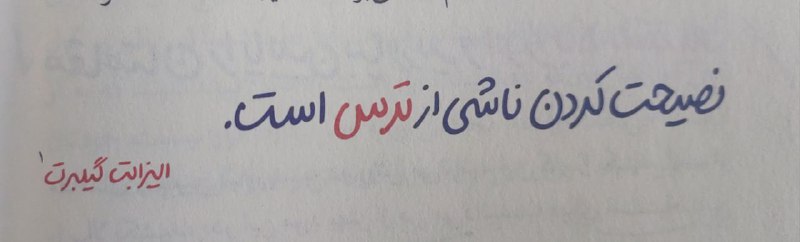 نصیحت کردن ناشی از ترس است.
الیزابت گیلبرت۱